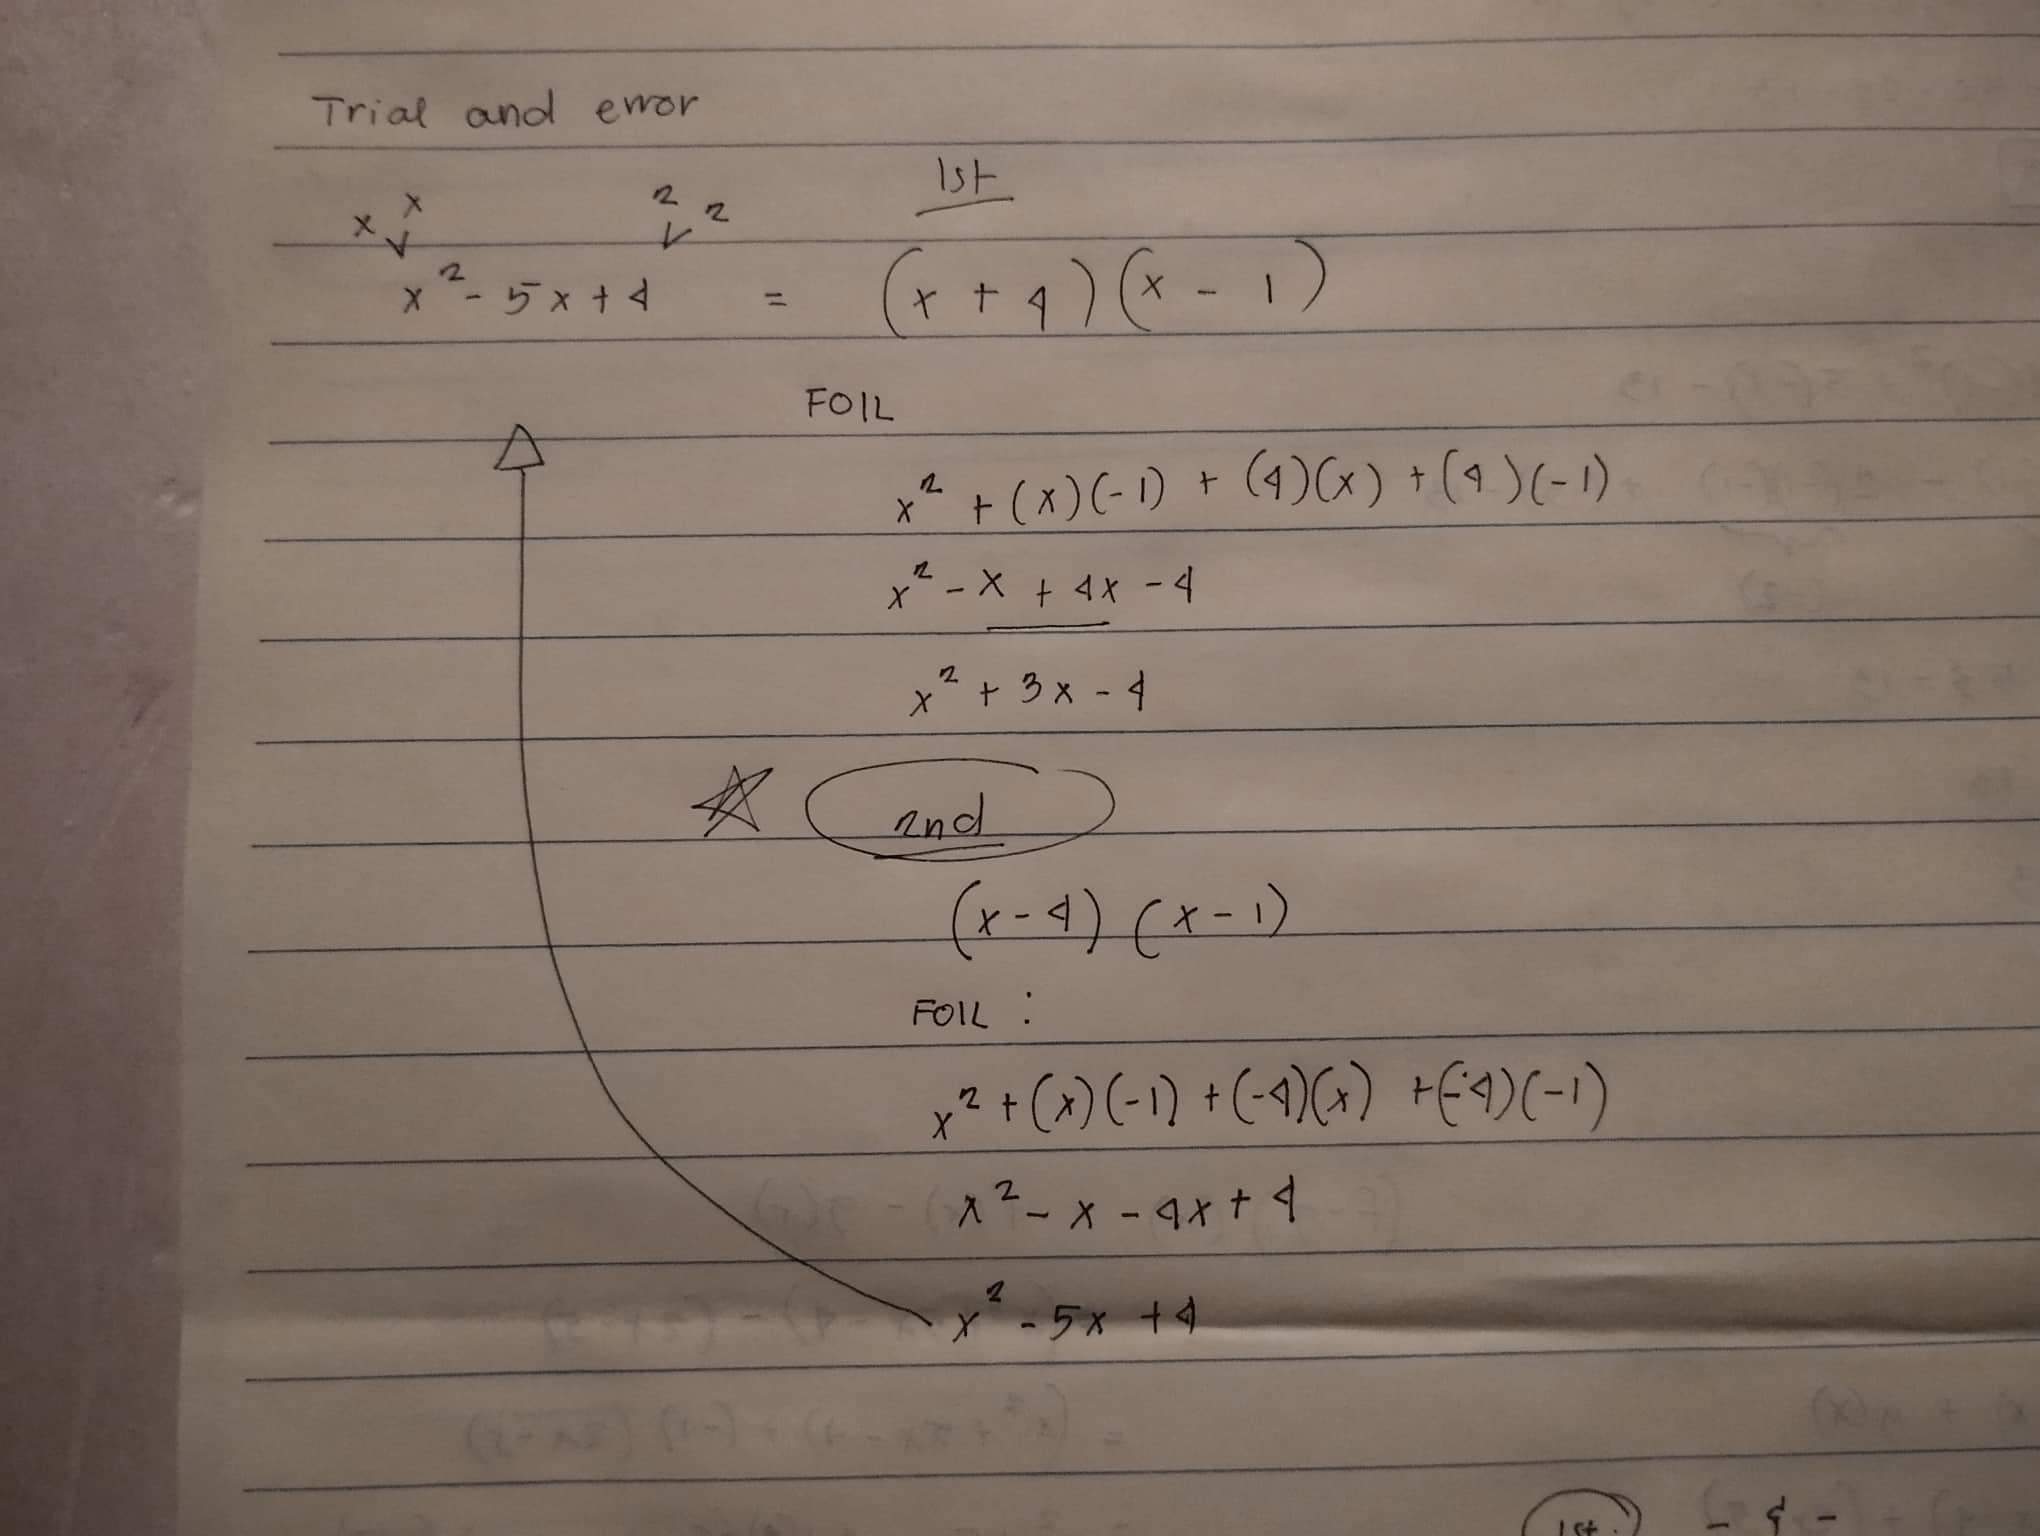 Trial and error
x x 2 2 1st
x² - 5x + 4 = (x + 4)(x - 1)
FOIL
x² + (x)(-1) + (4)(x) + (4)(-1)
x² - x + 4x - 4
x² + 3x - 4
2nd
(x - 4) (x - 1)
FOIL :
x² + (x)(-1) + (-4)(x) + (-4)(-1)
x² - x - 4x + 4
x² - 5x + 4
1st